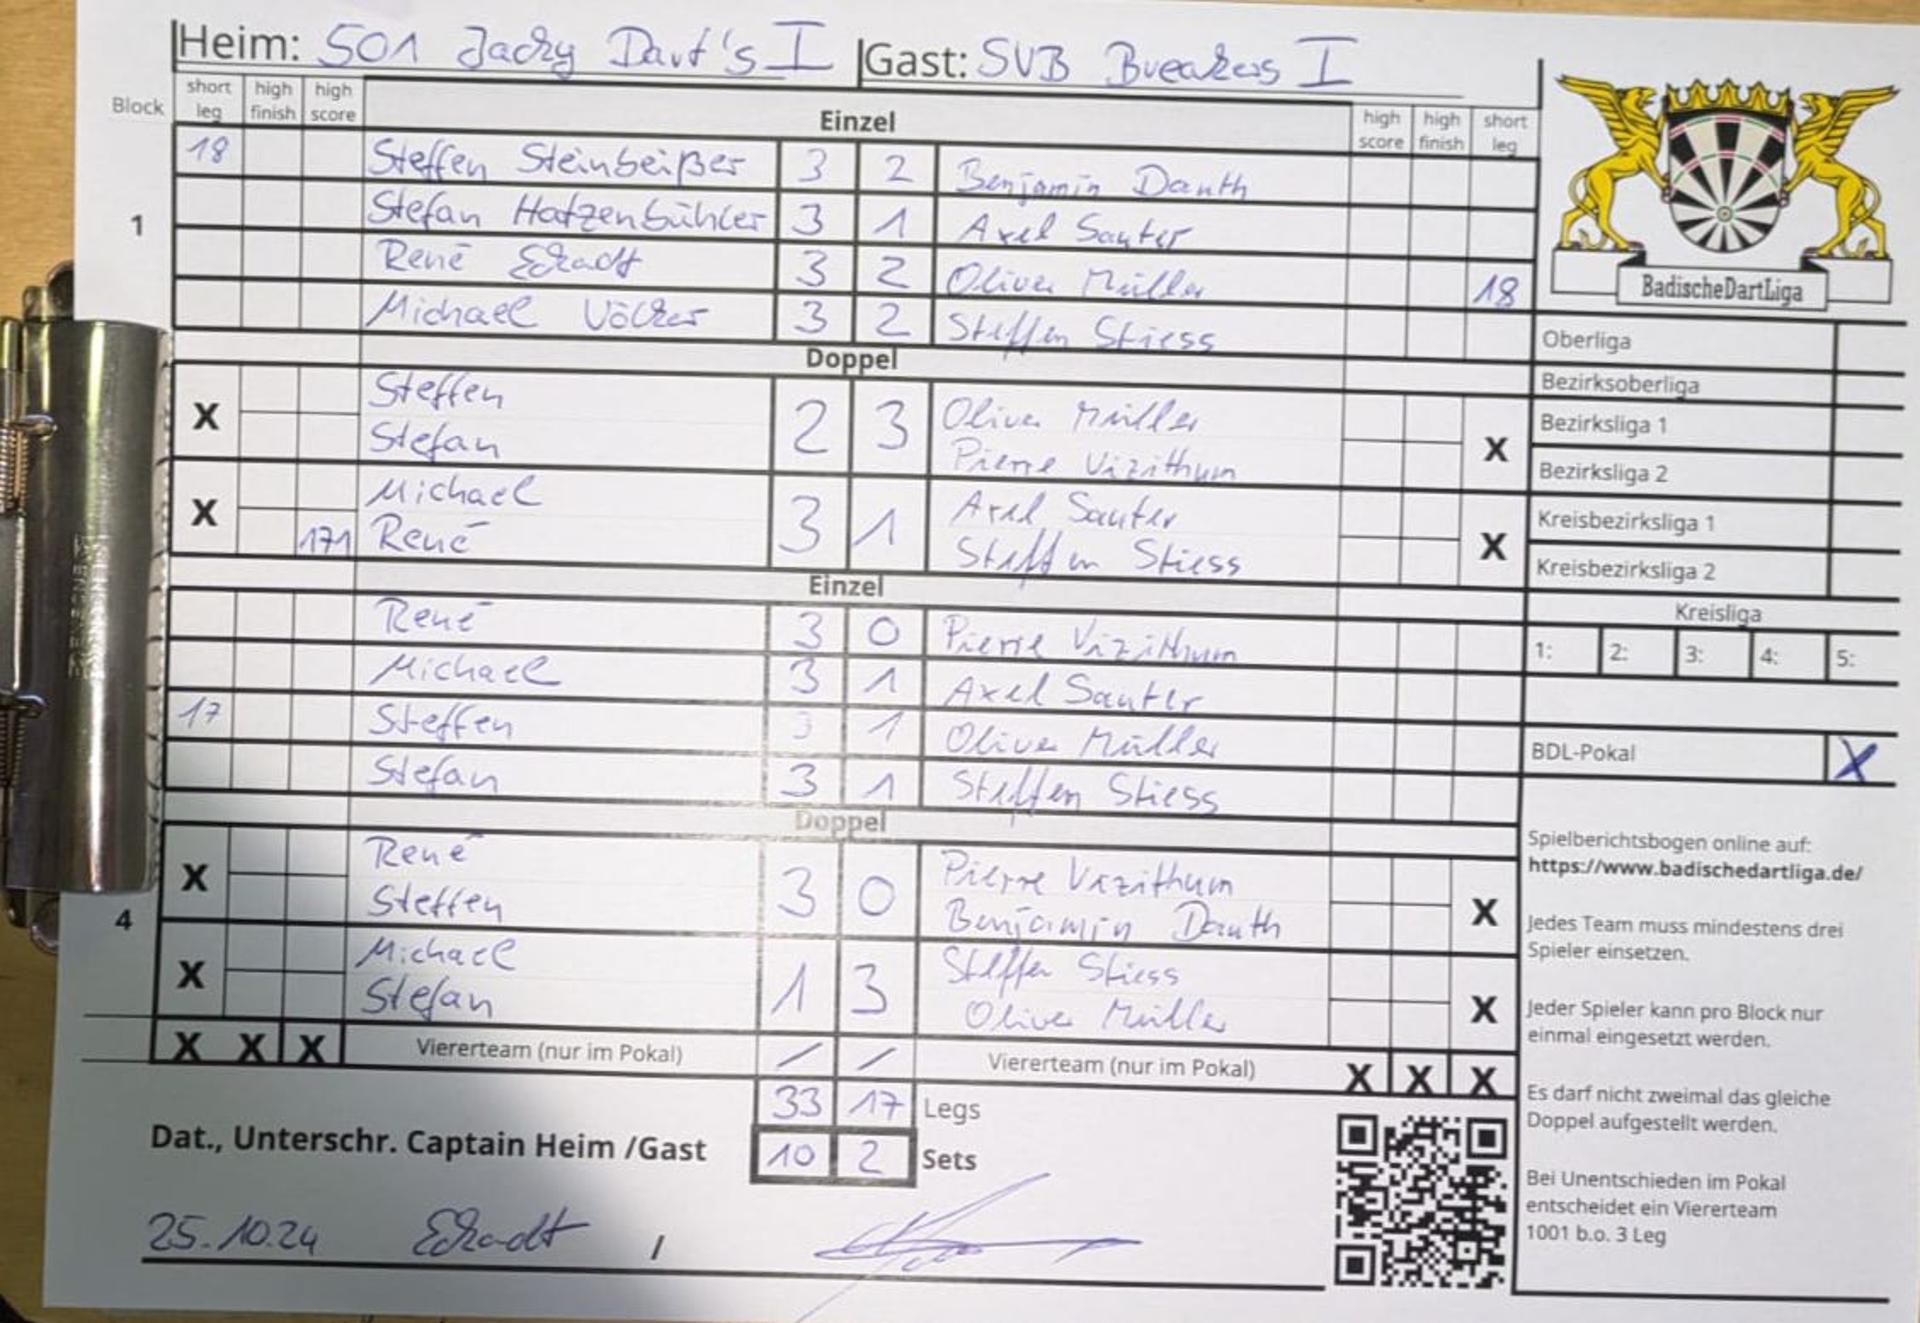 Heim: 501 Jacky Dart's I Gast: SVB Breakers I
Block short leg high finish high score Einzel high score high finish short leg
18 Steffen Steinbeißer 3 2 Benjamin Danth
1 Stefan Hatzenbühler 3 1 Axel Sauter
René Eckadt 3 2 Oliver Müller 18
Michael Völker 3 2 Steffen Stiess
Doppel
X Steffen 2 3 Oliver Müller X
Stefan Pierre Vizithum
X Michael 3 1 Axel Sauter X
171 René Steffen Stiess
Einzel
René 3 0 Pierre Vizithum
Michael 3 1 Axel Sauter
17 Steffen 3 1 Oliver Müller
Stefan 3 1 Steffen Stiess
Doppel
X René 3 0 Pierre Vizithum X
4 Steffen Benjamin Danth
X Michael 1 3 Steffen Stiess X
Stefan Oliver Müller
X X X Viererteam (nur im Pokal) / / Viererteam (nur im Pokal) X X X
33 17 Legs
Dat., Unterschr. Captain Heim /Gast 10 2 Sets
25.10.24 Eckadt /
BadischeDartLiga
Oberliga
Bezirksoberliga
Bezirksliga 1
Bezirksliga 2
Kreisbezirksliga 1
Kreisbezirksliga 2
Kreisliga
1: 2: 3: 4: 5:
BDL-Pokal X
Spielberichtsbogen online auf:
https://www.badischedartliga.de/
Jedes Team muss mindestens drei
Spieler einsetzen.
Jeder Spieler kann pro Block nur
einmal eingesetzt werden.
Es darf nicht zweimal das gleiche
Doppel aufgestellt werden.
Bei Unentschieden im Pokal
entscheidet ein Viererteam
1001 b.o. 3 Leg